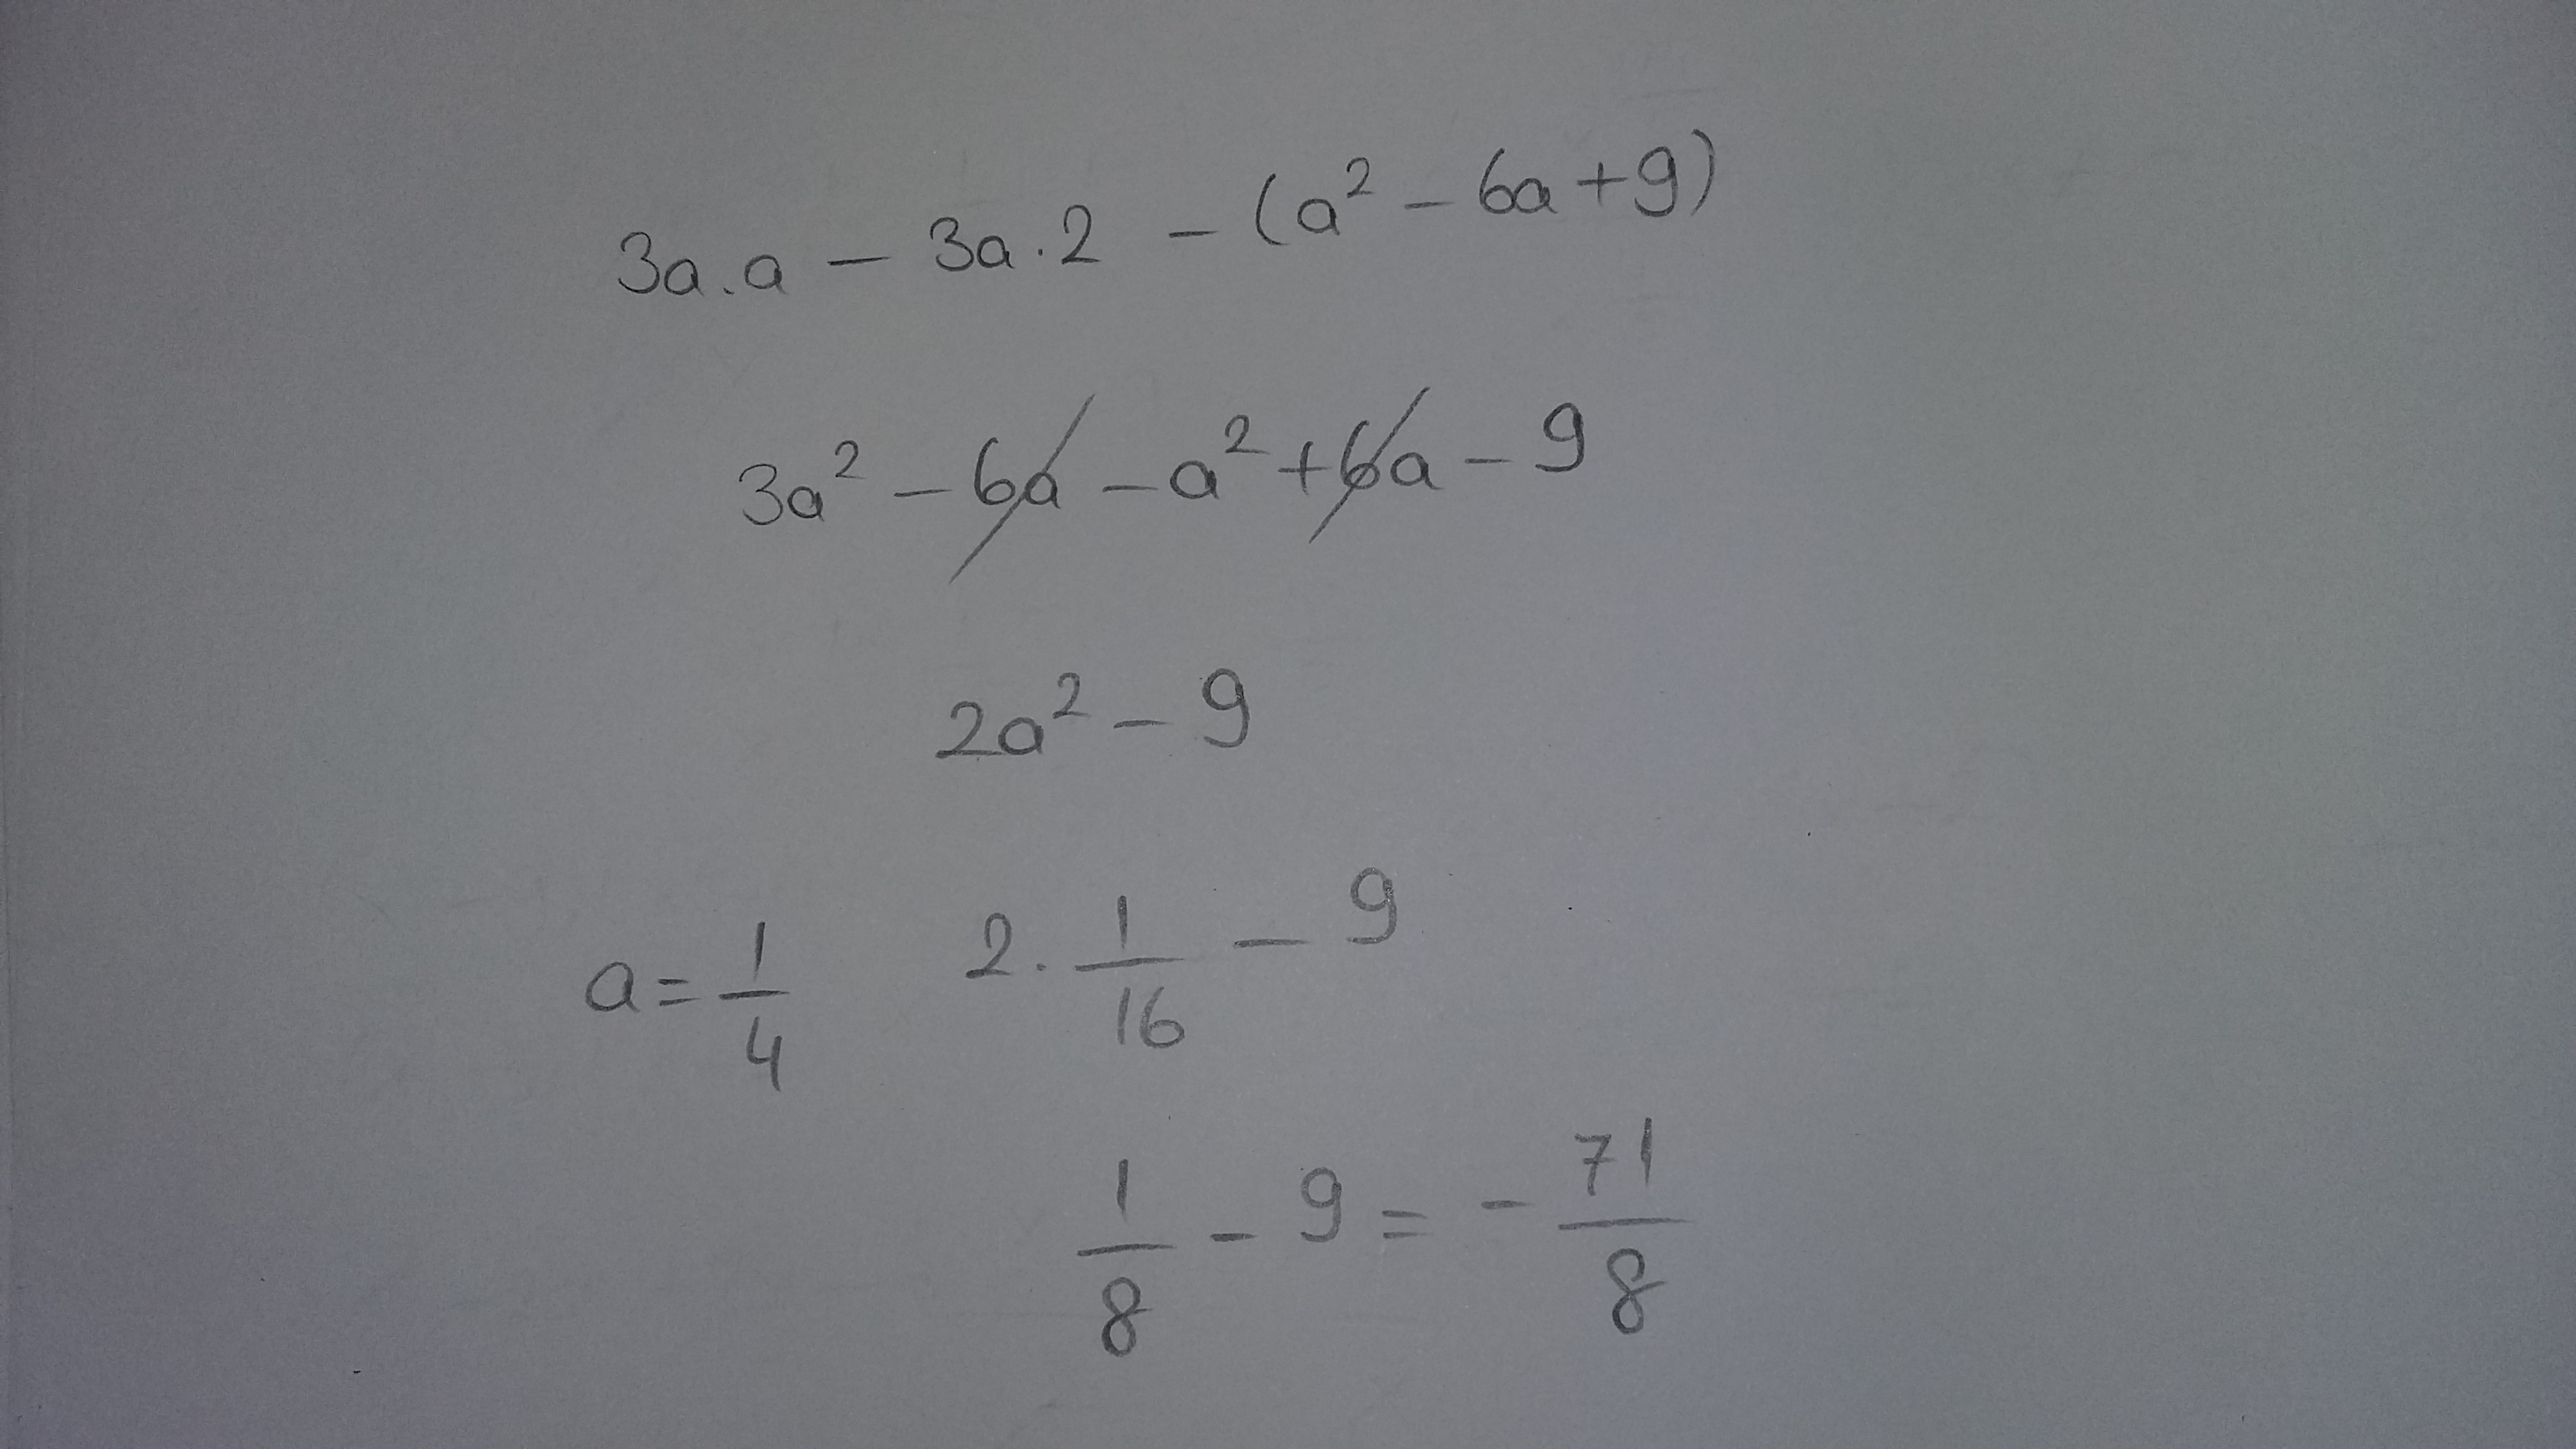 3a.a - 3a.2 - (a² - 6a + 9)
3a² - 6a - a² + 6a - 9
2a² - 9
a = 1/4 2. 1/16 - 9
1/8 - 9 = - 71/8